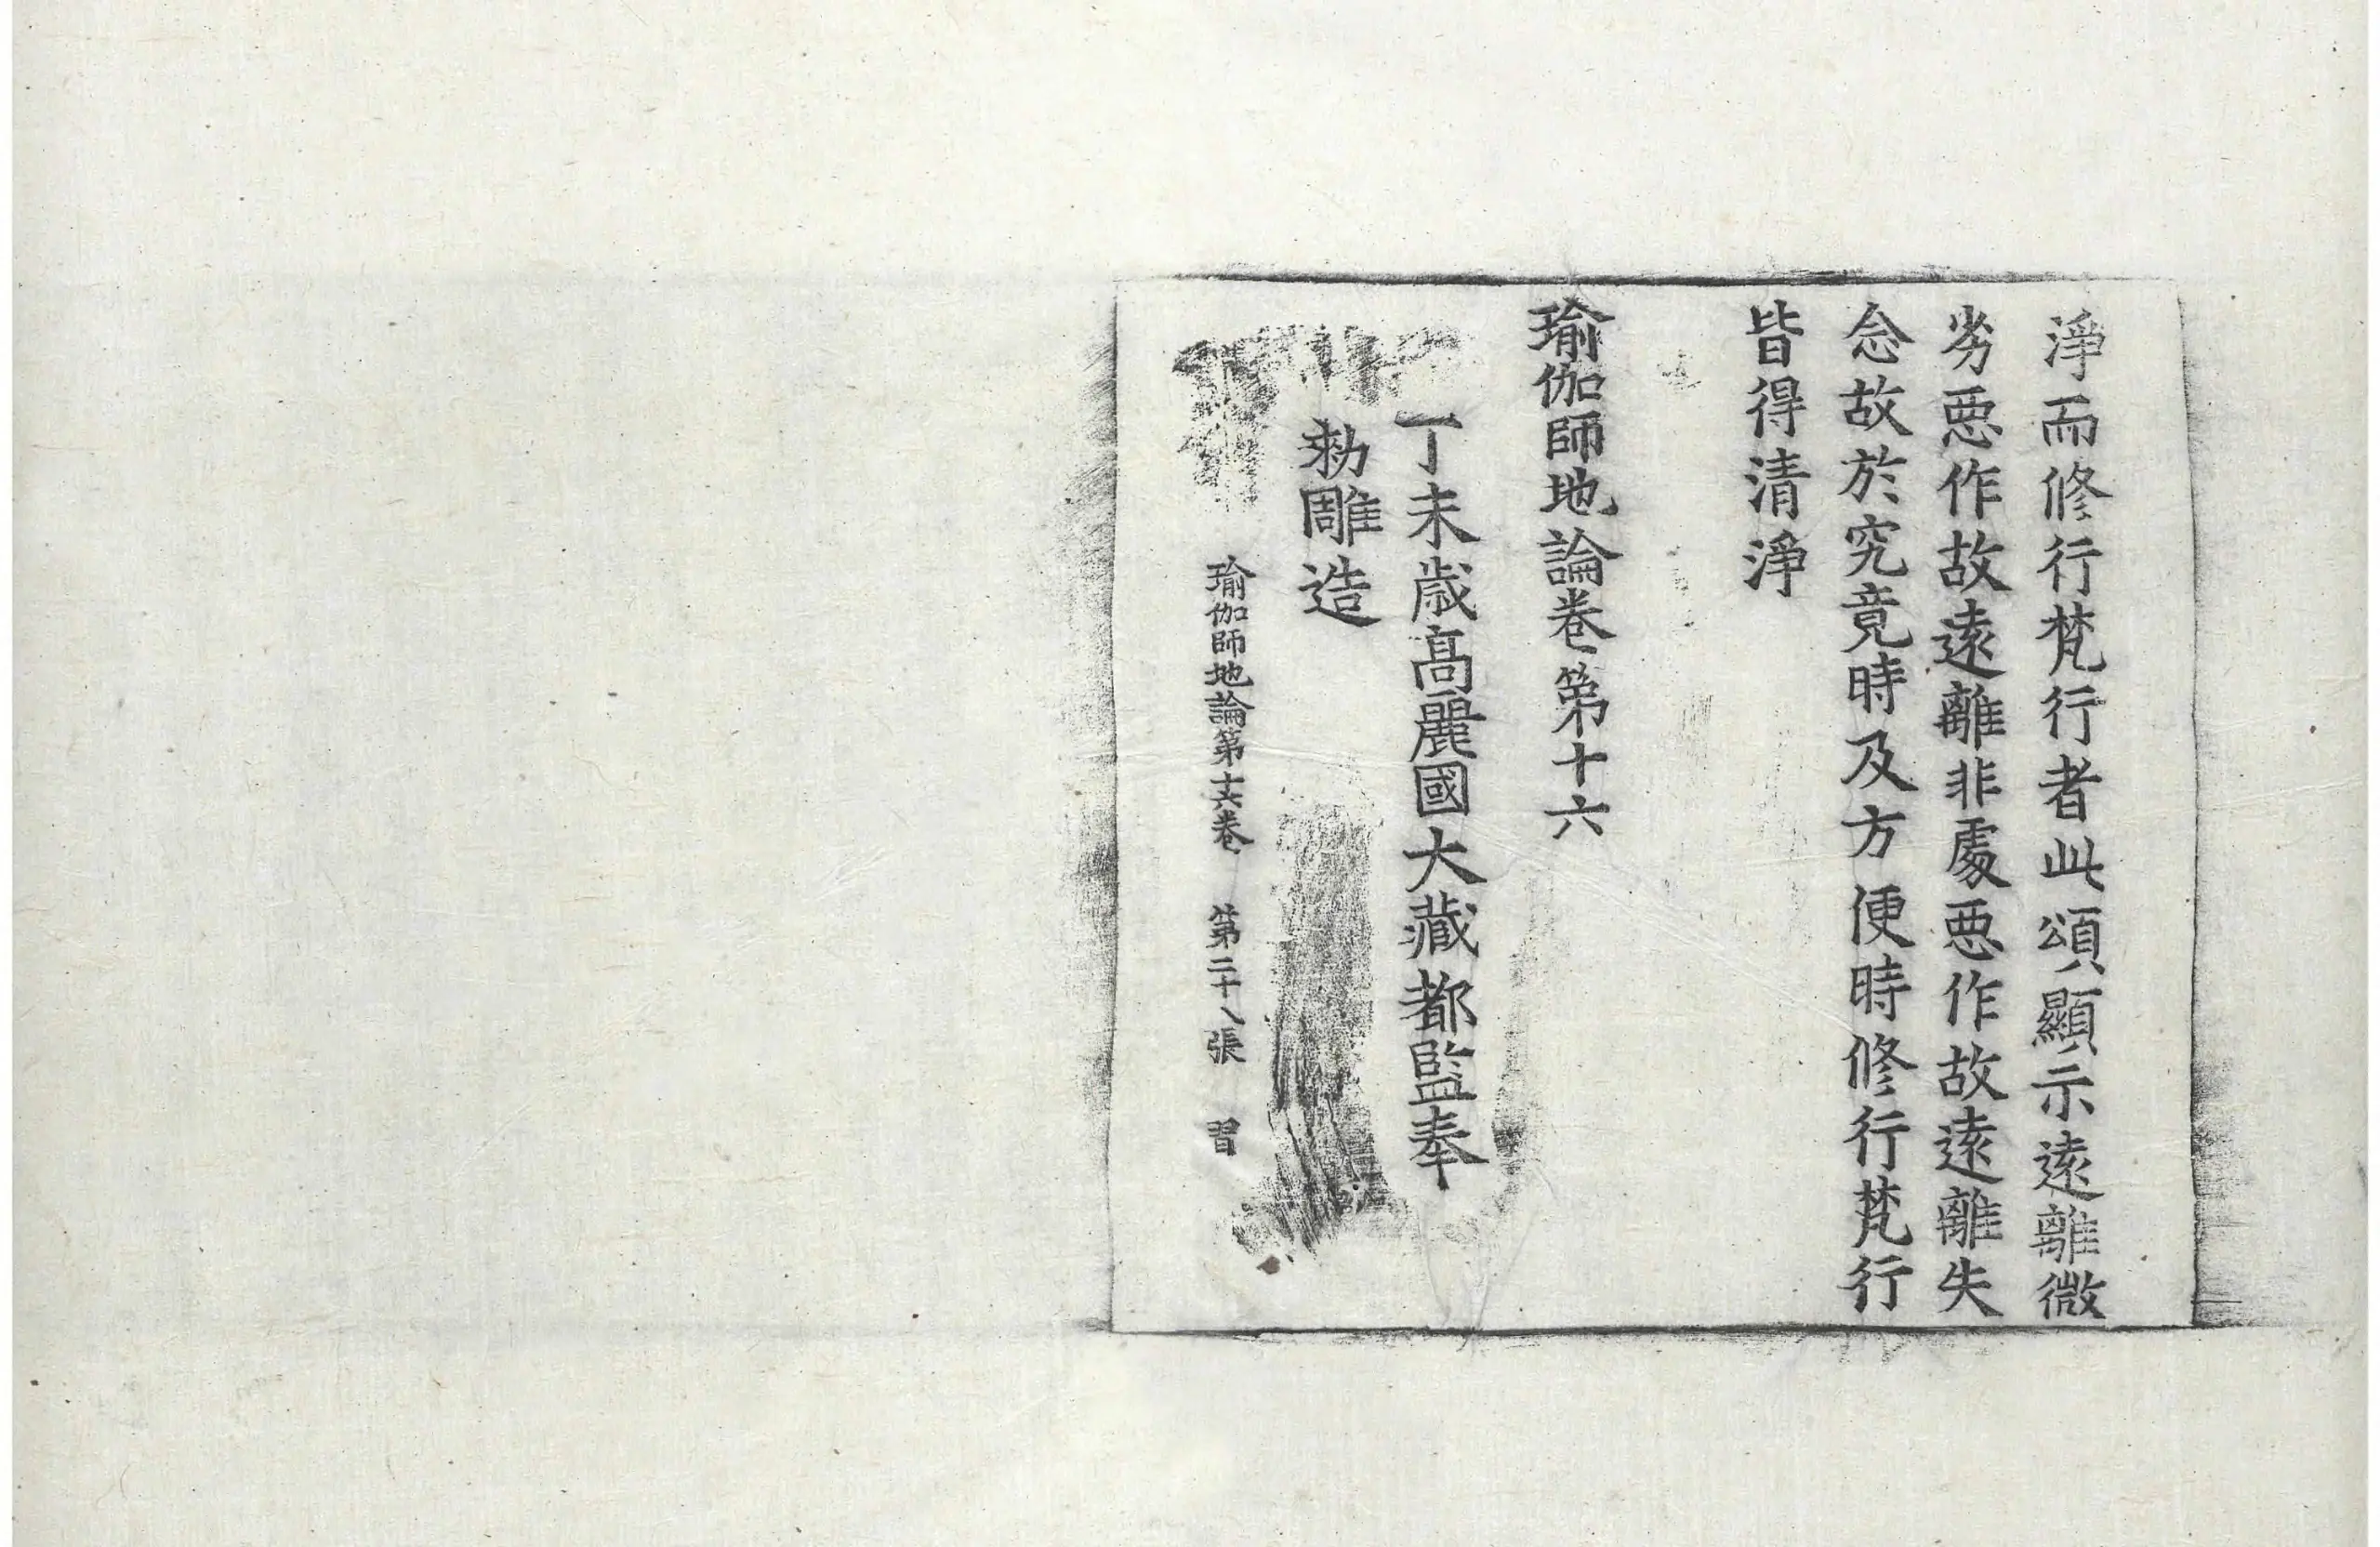 淨而修行梵行者此頌顯示遠離微
劣悪作故遠離非處悪作故遠離失
念故於究竟時及方便時修行梵行
皆得清淨
瑜伽師地論卷第十六
丁未歲高麗國大藏都監奉
勑雕造
瑜伽師地論第十六卷 第二十八張 習